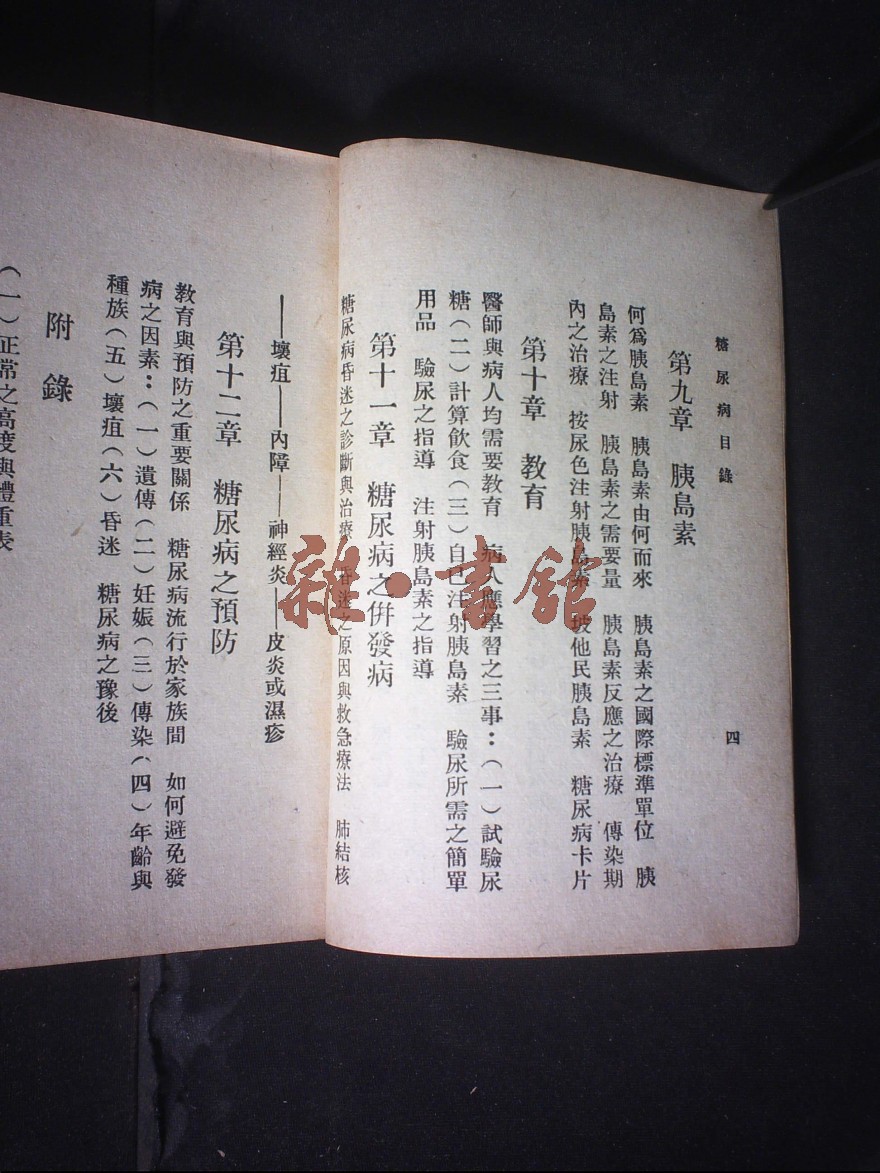 糖尿病目錄
四
第九章 胰島素
何爲胰島素 胰島素由何而來 胰島素之國際標準單位 胰
島素之注射 胰島素之需要量 胰島素反應之治療 傳染期
內之治療 按尿色注射胰島素 玻他民胰島素 糖尿病卡片
第十章 教育
醫師與病人均需要教育 病人應學習之三事：(一)試驗尿
糖(二)計算飲食(三)自己注射胰島素 驗尿所需之簡單
用品 驗尿之指導 注射胰島素之指導
第十一章 糖尿病之倂發病
糖尿病昏迷之診斷與治療 昏迷之原因與救急療法 肺結核
——壞疽——內障——神經炎——皮炎或濕疹
第十二章 糖尿病之預防
教育與預防之重要關係 糖尿病流行於家族間 如何避免發
病之因素：(一)遺傳(二)妊娠(三)傳染(四)年齡與
種族(五)壞疽(六)昏迷 糖尿病之豫後
附錄
(一)正常之高度與體重表
雜·書館